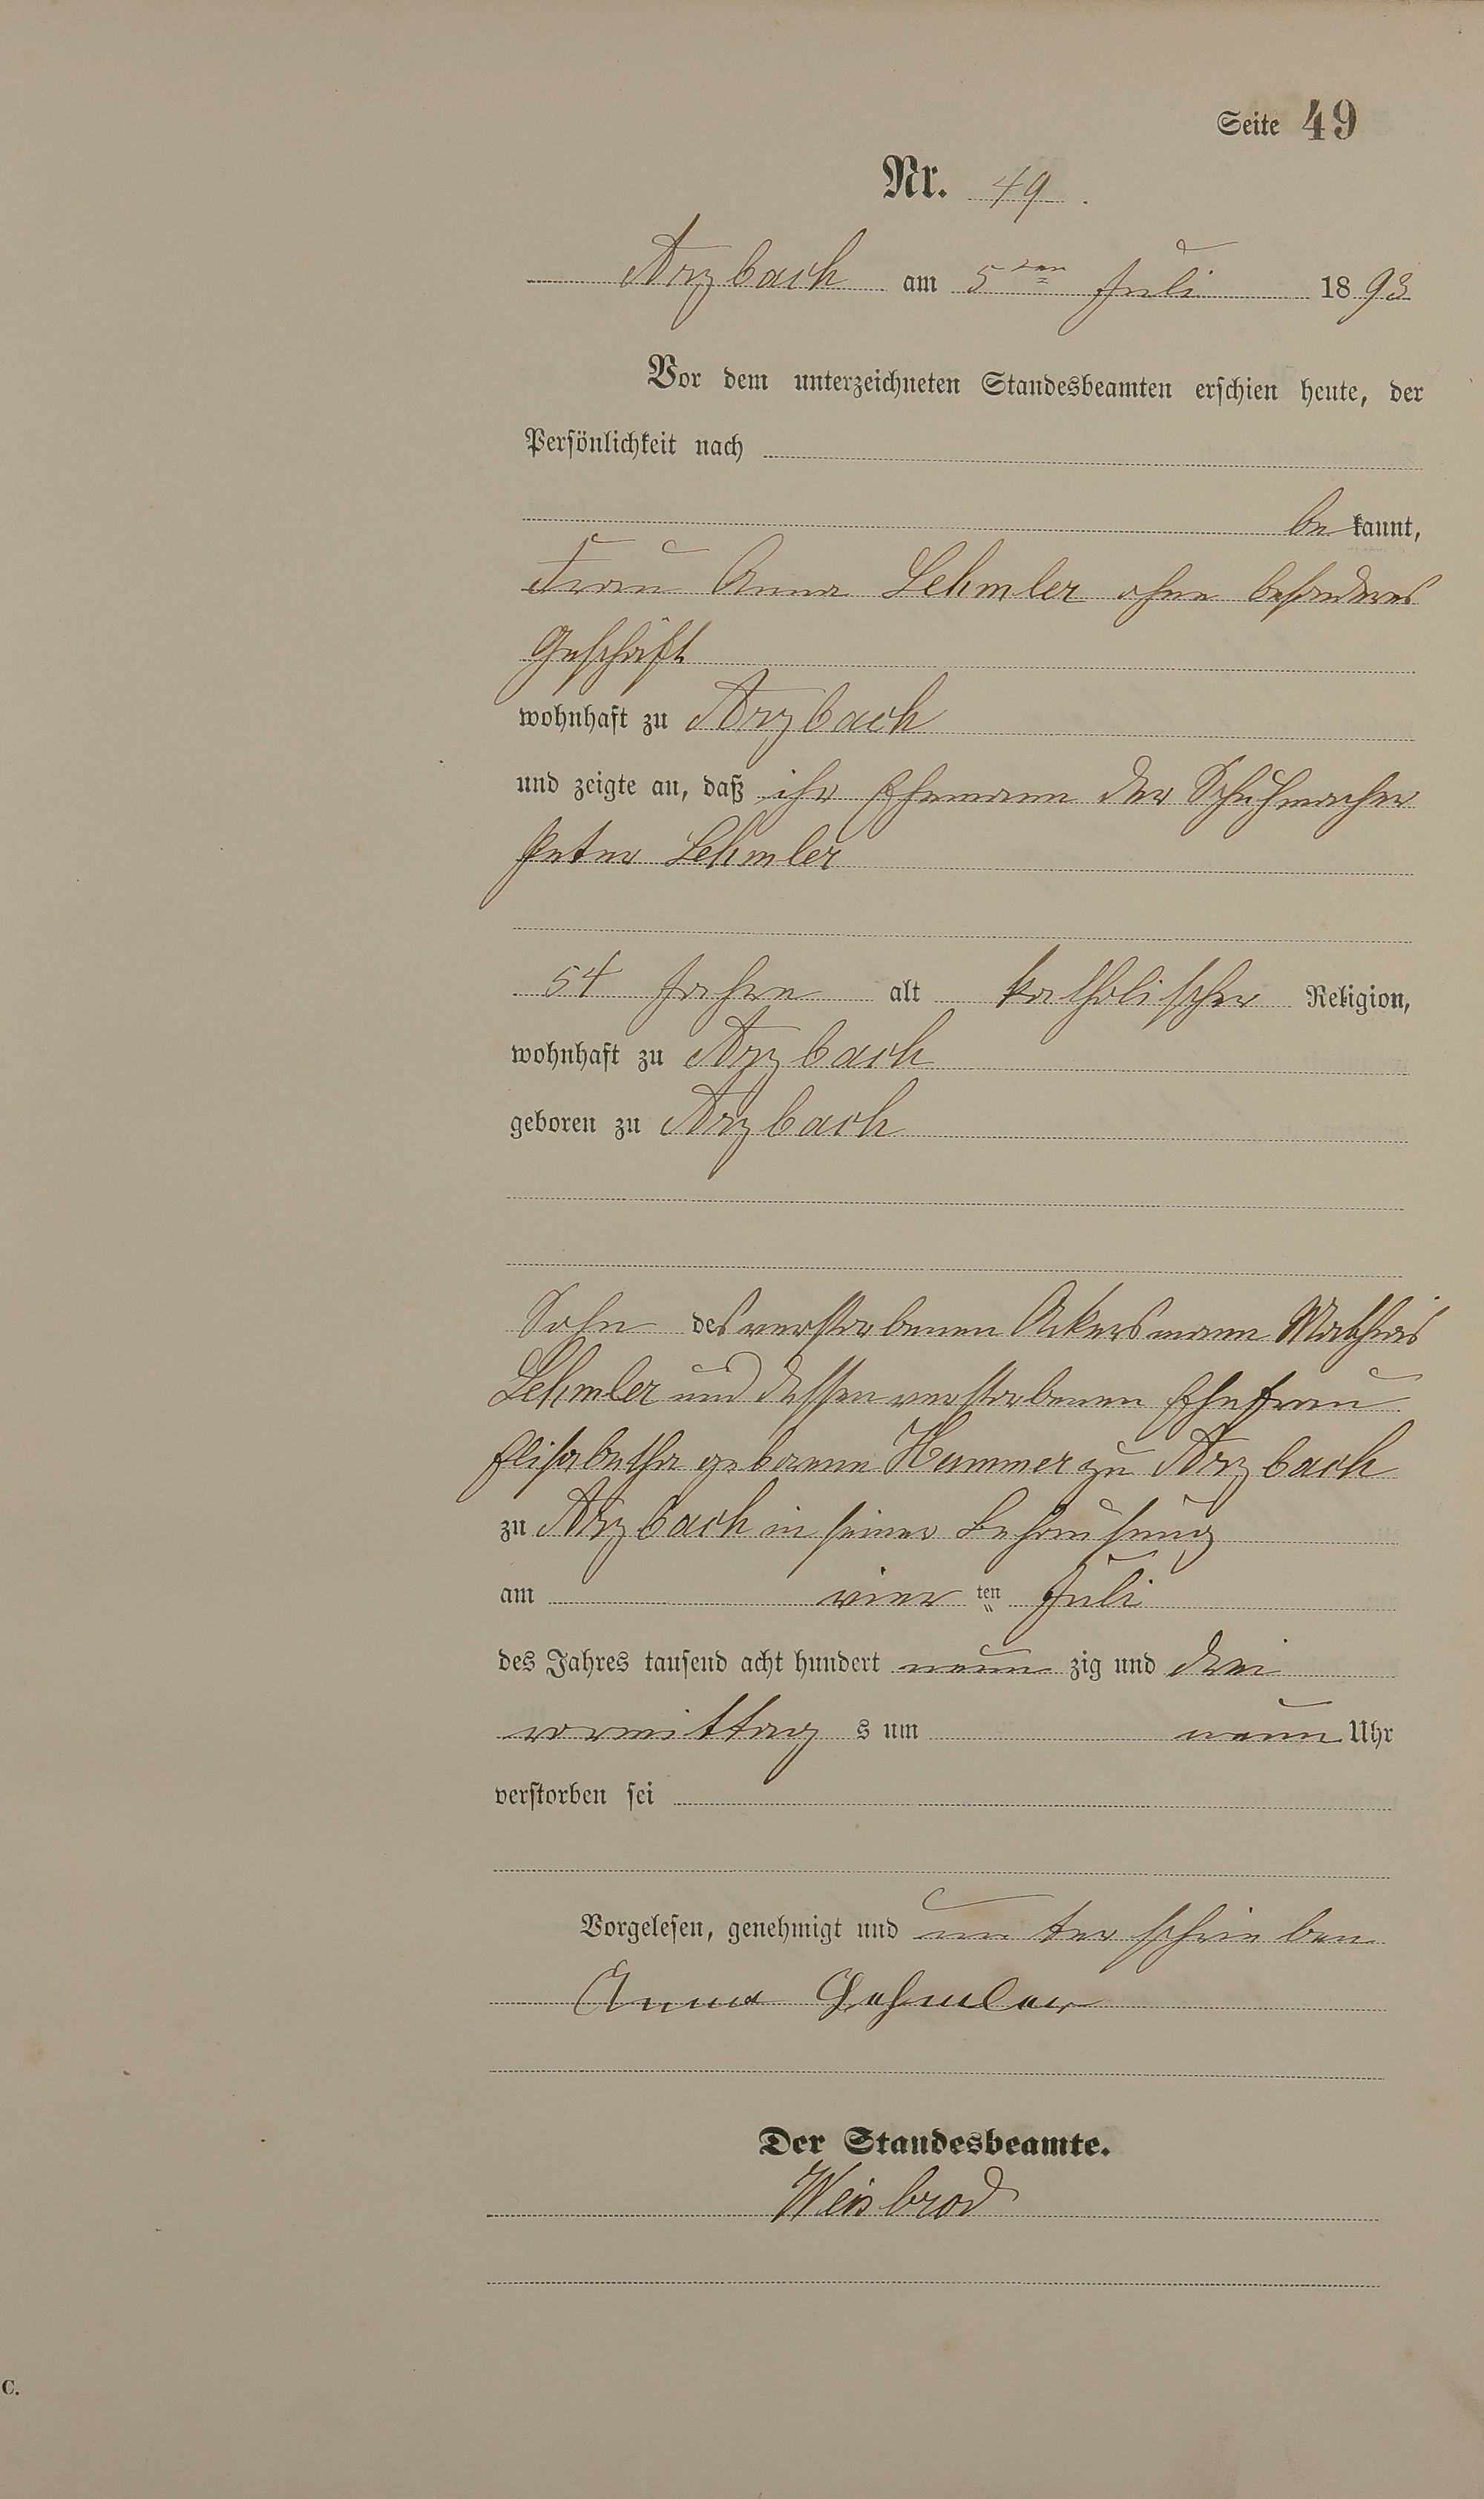 Seite 49
Nr. 49.
Arzbach am 5ten Juli 1893
Vor dem unterzeichneten Standesbeamten erschien heute, der
Persönlichkeit nach
bekannt,
Frau Anna Lehmler ohne besonderes
Geschäft
wohnhaft zu Arzbach
und zeigte an, daß ihr Ehemann der Schuhmacher
Peter Lehmler
54 Jahre alt katholischer Religion,
wohnhaft zu Arzbach
geboren zu Arzbach
Sohn des verstorbenen Ackersmann Mathias
Lehmler und dessen verstorbenen Ehefrau
Elisabetha geborene Hammer zu Arzbach
zu Arzbach in seiner Behausung
am vierten Juli
des Jahres tausend acht hundert neunzig und drei
vormittags um neun Uhr
verstorben sei
Vorgelesen, genehmigt und unterschrieben
Anna Lehmler
Der Standesbeamte.
Weisbrod
C.